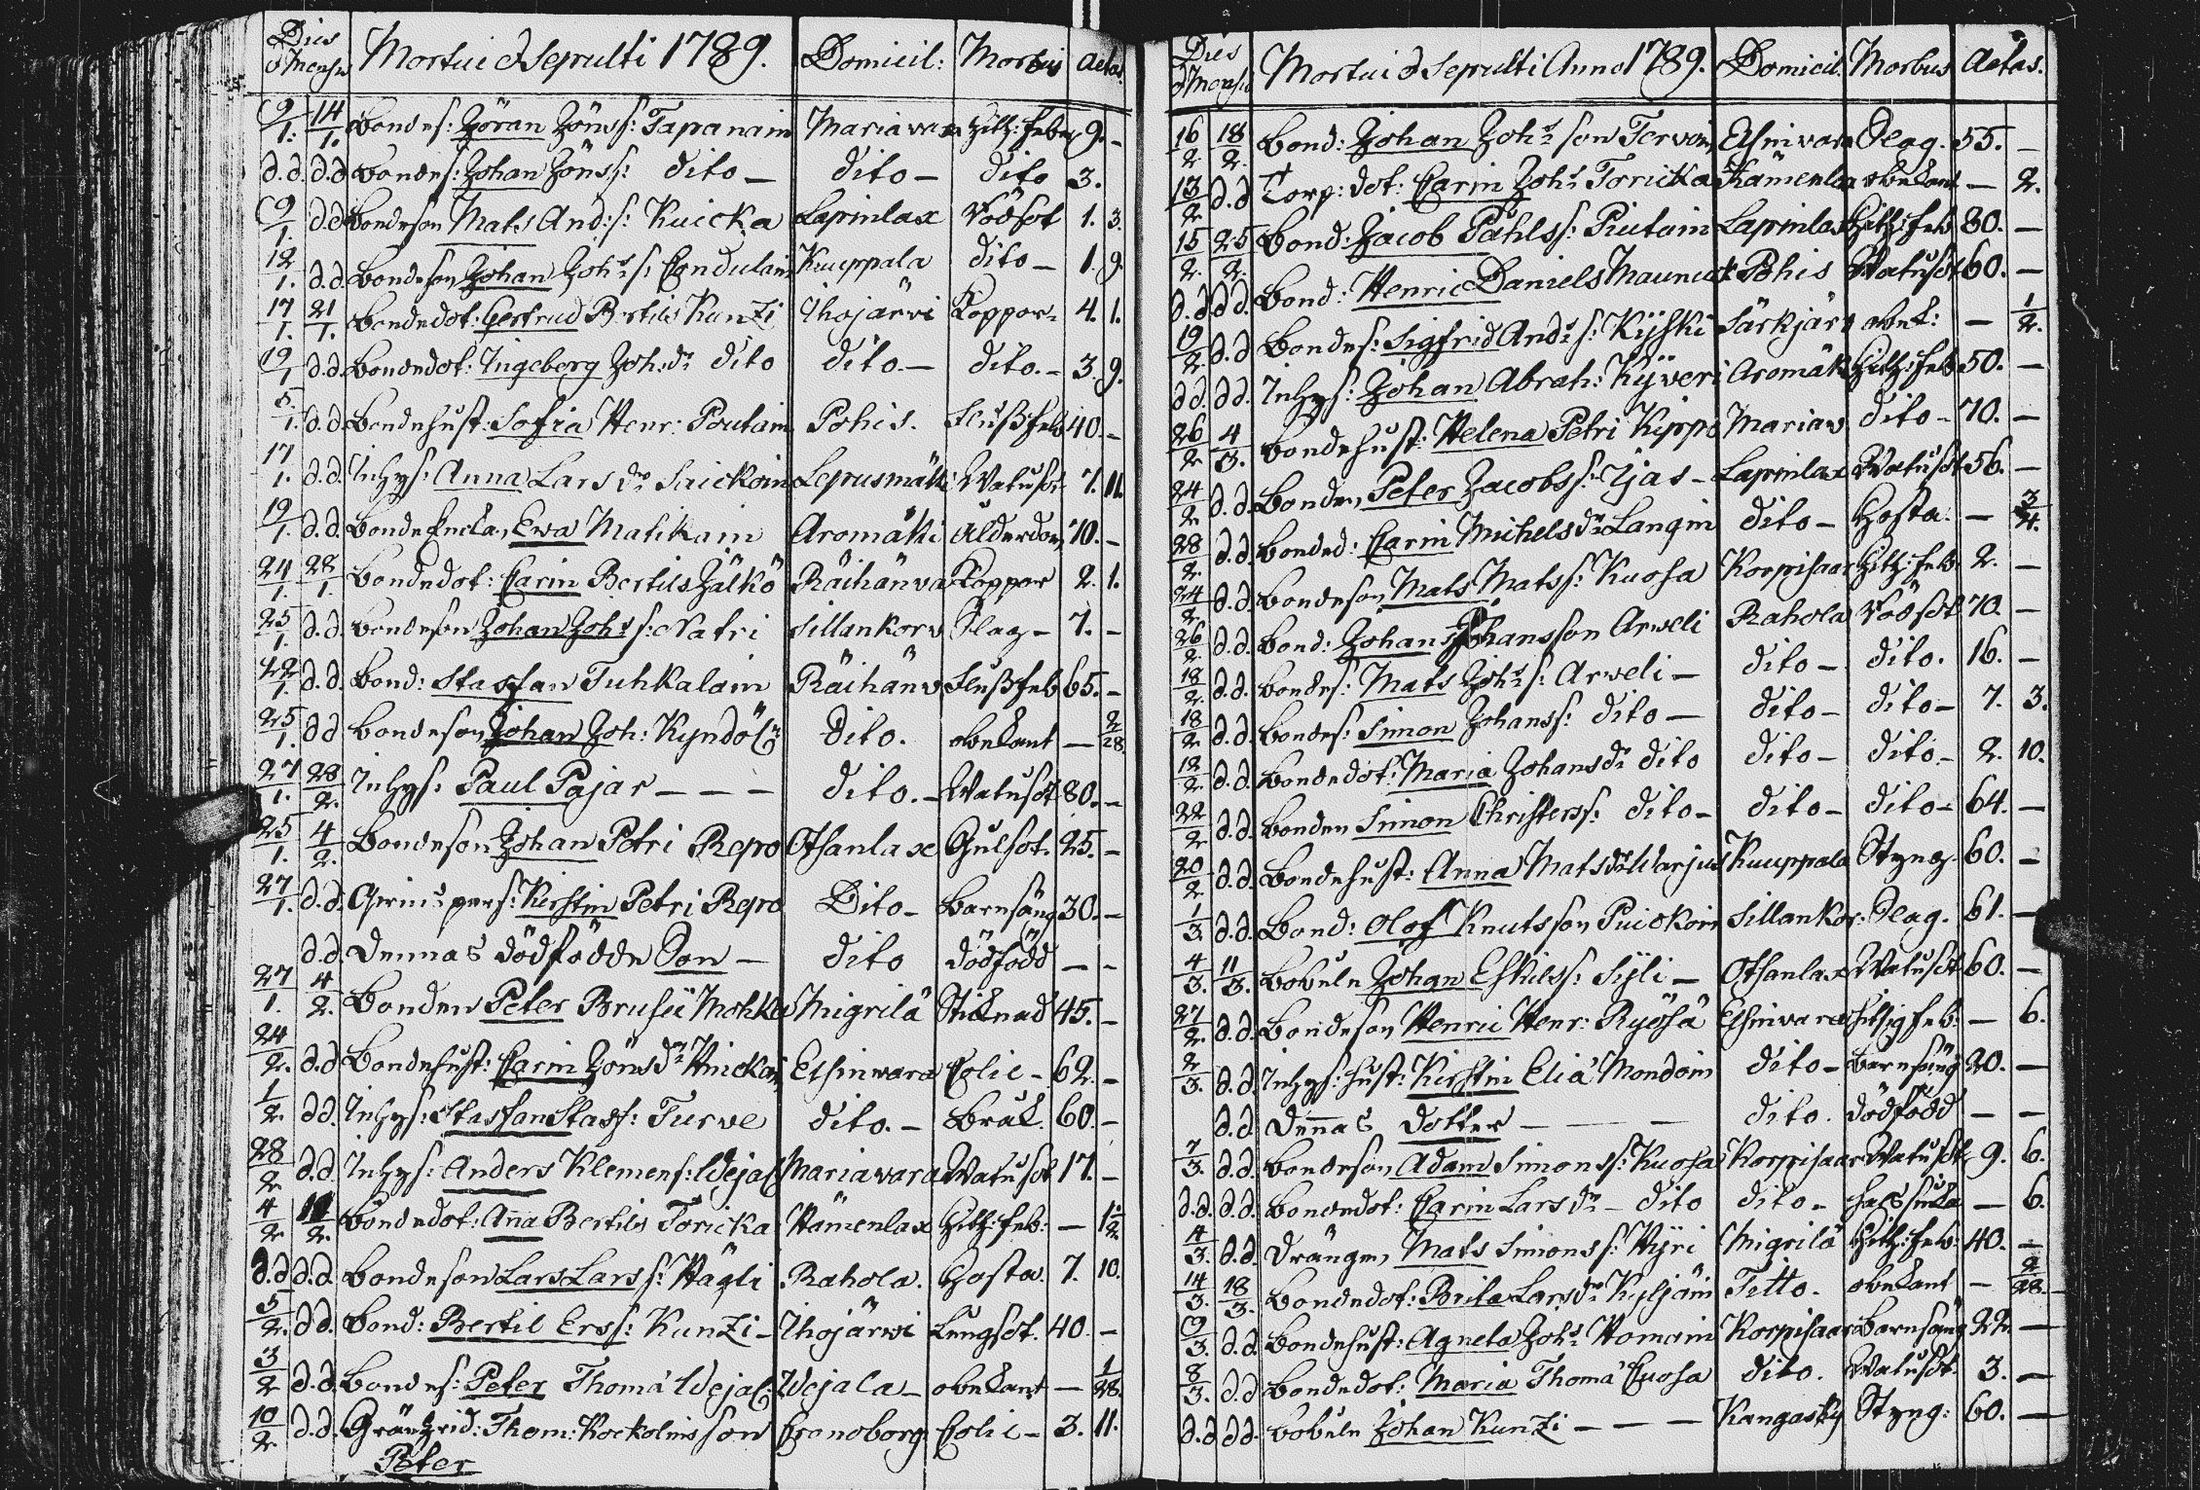 Dies & Mensis Mortui & Sepulti 1789. Domicil: Morbus Aetas
9/1. 14/1. Bondes: Jöran Jönss: Tapanain Mariavara Hitz: feber 9. -
d.d. d.d. Bondes: Johan Jönss: dito - dito - dito 3.
9/1. d.d. Bondeson Mats And: s: Kuicka Lapinlax Rödsot 1. 3.
12/1. d.d. Bondeson Johan Joh: s: Kuuppala dito - 1. 9.
17/1. 21/1. Bondedot: Gertrud Bertils Kunzi Ihojärvi Koppor 4. 1.
19/1 d.d. Bondedot: Ingeborg Joh: dr dito dito - dito. - 3. 9.
5/1. d.d. Bondehust: Sofia Henr: Poutain Pohis. Flussfeb 40. -
17/1. d.d. Inhys: Anna Lars dr Saickoin Lepusmäki Watusot 7. 11.
19/1. d.d. Bonde Enckan Ewa Matikain Aromäki Ålderdom 70. -
24/1. 28/1. Bondedot: Carin Bertils Jälkö Räihänva Koppor 2. 1.
25/1. d.d. Bondeson Johan Johs s: Natri Sillankorv Slag - 7. -
22/1. d.d. Bond: Staffan Tuhkalain Räihänv Flussfeb 65. -
25/1. d.d. Bondeson Johan Joh: Kyndöl dito. obekant - 2/28.
27/1. 28/2. Inhys: Paul Pajar - - - dito. - Watusot 80. -
25/1. 4/2. Bondeson Johan Petri Repo Otsanlax Gulsot. 25. -
27/1. d.d. Kirstin Petri Repo Dito - Barnsäng 30. -
d.d. Dennas dödfödde Son - dito dödfödd - -
27/1. 4/2. Bonden Peter Brusii Mohka Migrilä Sticknad 45. -
24/2. d.d. Bondehust: Carin Jönsdr Huickoi Etsinvara Colic - 62. -
1/2. d.d. Inhys: Staffan Stafs: Turve dito. - Bråk. 60. -
28/2 d.d. Inhys: Anders Klemens: Wejal Mariavara Watusot 17. -
4/2 11/2. Bondedot: Anna Bertils Toricka Hämenlax Hitz: feb: - 1 1/2
d.d. d.d. Bondeson Lars Lars s: Hägli Rahola. Hosta. 7. 10.
5/2. d.d. Bond: Bertil Erss: Kunzi - Ihojärwi Lungsot. 40. -
3/2 d.d. Bondes: Peter Thomæ Wejal: Wejala - obekant - 1/28.
10/2. d.d. Gränzrid: Thom: Kockolins son Cronoborg Colic - 3. 11.
Peter
Dies & Mensis Mortui & Sepulti Anno 1789. Domicil: Morbus Aetas.
16/2 18/2. Bond: Johan Johs son Tervoin Etsinvara Slag. 55. -
13/2 d.d Torp: dot: Carin Johs Toricka Hämenlax obekant - 2.
15/2. 25/2. Bond: Jacob Påhls s: Piutain Lapinlax Hitz: feb 80. -
d.d d.d. Bond: Henric Daniels Maunu Pohis Watusot 60. -
19/2 d.d Bondes: Sigfrid Ands s: Kijski Särkjärv obek: - 1/2.
d.d. d.d. Inhys: Johan Abrah: Kijveri Aromäk Hitz: feb 50. -
26/2 4/3. Bondehust: Helena Petri Kippo Mariav dito - 70. -
24/2 d.d. Bonden Peter Jacobs s: Ijas - Lapinlax Watusot 56. -
28/2. d.d. Bonded: Carin Michels dr Langin dito - Hosta. - 3/4.
24/2 d.d. Bondeson Mats Mats s: Kuosa Korpisaar Hitz: feb. 2. -
26/2. d.d. Bond: Johan Johansson Arweli Rahola Rödsot 70. -
18/2 d.d. Bondes: Mats Johs s: Arweli - dito - dito. 16. -
18/2 d.d. Bondes: Simon Johanss: dito - dito - dito - 7. 3.
18/2 d.d. Bondedot: Maria Johansdr dito dito - dito. - 2. 10.
22/2 d.d. Bonden Simon Christerss: dito - dito - dito - 64. -
20/2 d.d. Bondehust: Anna Matsdr Warjus Kuuppala Styng. 60. -
1/3. d.d. Bond: Olof Knutsson Puickoin Sillankor. Slag. 61. -
4/3. 11/3. Bobuln Johan Eskilss: Sijli - Otsanlax Watusot 60. -
27/2. d.d. Bondeson Henric Henr: Ryösä Etsinvara hitsig feb: - 6.
2/3. d.d. Inhys: hust: Kirstin Eliæ Mondoin dito - Barnsäng 20. -
d.d Dennas dotter - - - dito. dödfödd - -
7/3. d.d. Bondeson Adam Simons s: Kuosa Korpisaar Watusot 9. 6.
d.d. d.d. Bondedot: Carin Lars dr - dito dito - halssuka - 6.
4/3. d.d. Drängen Mats Simons s: Hyri Migrilä Hitz: feb: 40. -
14/3. 18/3. Bondedot: Brita Lars dr Kyljäin Titto. obekant - 2/28.
9/3. d.d. Bondehust: Agneta Johs Homain Korpisaar Barnsäng 22. -
8/3. d.d Bondedot: Maria Thomæ Cuosa dito. Watusot. 3. -
d.d d.d. Bobuln Johan Kunzi - - - Kangasky Styng: 60. -